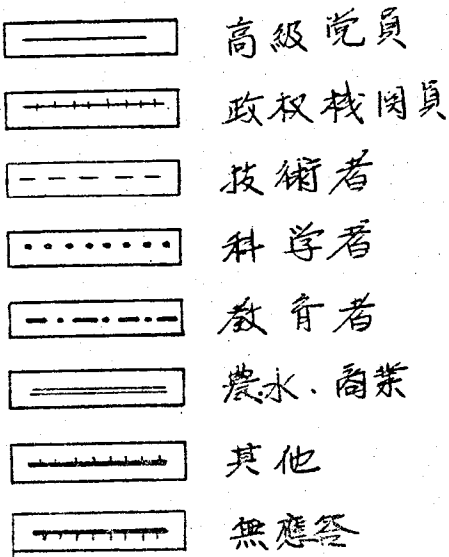 高級党員
政权栈関員
技術者
科学者
教育者
農水．商業
其他
無應答